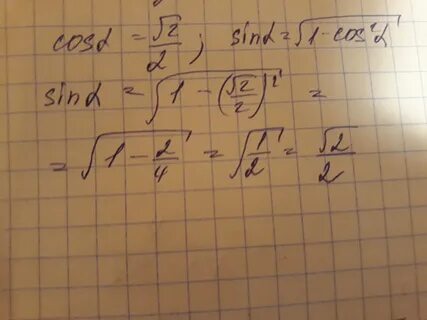 cosα = √2/2 ; sinα = √(1 - cos²α)
sinα = √(1 - (√2/2)²) =
= √(1 - 2/4) = √(1/2) = √2/2